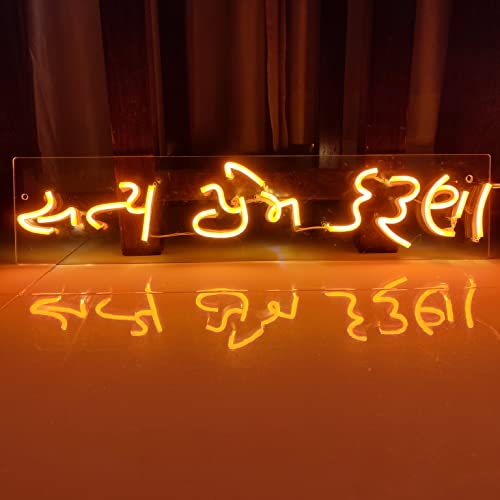 સત્ય પ્રેમ કરુણા